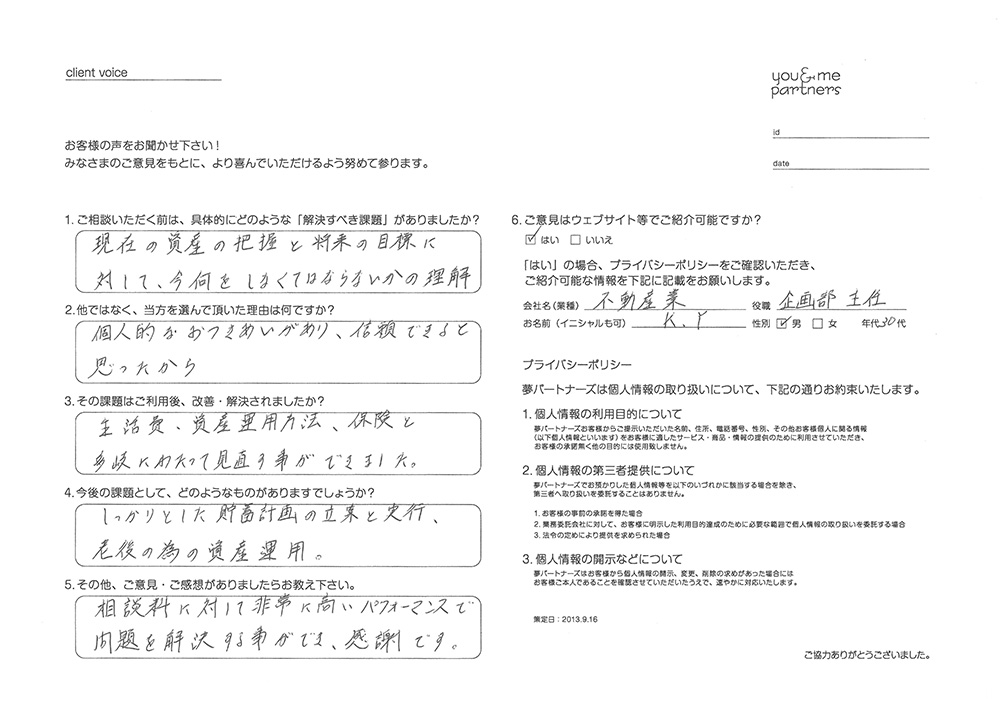 client voice
you&me
partners
id
date
お客様の声をお聞かせ下さい！
みなさまのご意見をもとに、より喜んでいただけるよう努めて参ります。
1. ご相談いただく前は、具体的にどのような「解決すべき課題」がありましたか？
現在の資産の把握と将来の目標に
対して、今何をしなくてはならないかの理解
2. 他ではなく、当方を選んで頂いた理由は何ですか？
個人的なおつきあいがあり、信頼できると
思ったから
3. その課題はご利用後、改善・解決されましたか？
生活費、資産運用方法、保険と
多岐にわたって見直す事ができました。
4. 今後の課題として、どのようなものがありますでしょうか？
しっかりとした貯蓄計画の立案と実行、
老後の為の資産運用。
5. その他、ご意見・ご感想がありましたらお教え下さい。
相談料に対して非常に高いパフォーマンスで
問題を解決する事ができ、感謝です。
6. ご意見はウェブサイト等でご紹介可能ですか？
☑ はい □ いいえ
「はい」の場合、プライバシーポリシーをご確認いただき、
ご紹介可能な情報を下記に記載をお願いします。
会社名（業種） 不動産業 役職 企画部 主任
お名前（イニシャルも可） K.Y 性別 ☑ 男 □ 女 年代 30 代
プライバシーポリシー
夢パートナーズは個人情報の取り扱いについて、下記の通りお約束いたします。
1. 個人情報の利用目的について
夢パートナーズお客様からご提示いただいた名前、住所、電話番号、性別、その他お客様個人に関る情報
（以下個人情報といいます）をお客様に適したサービス・商品・情報の提供のために利用させていただき、
お客様の承諾無く他の目的には使用致しません。
2. 個人情報の第三者提供について
夢パートナーズでお預かりした個人情報等を以下のいづれかに該当する場合を除き、
第三者へ取り扱いを委託することはありません。
1. お客様の事前の承諾を得た場合
2. 業務委託会社に対して、お客様に明示した利用目的達成のために必要な範囲で個人情報の取り扱いを委託する場合
3. 法令の定めにより提供を求められた場合
3. 個人情報の開示などについて
夢パートナーズはお客様から個人情報の開示、変更、削除の求めがあった場合には
お客様ご本人であることを確認させていただいたうえで、速やかに対応いたします。
策定日：2013.9.16
ご協力ありがとうございました。